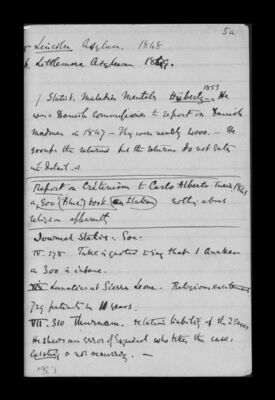 5a
5 Lincoln Asylum. 1848
6. Littlemore Asylum
1853
/ Statist. Maladies Mentals Hübertz — He
was a Danish Commissioner to report on Danish
madmen in 1847 — They were nearly 4000. — He
groups the returns but the returns do not get
into detail.
Report on Cretinism to Carlo Alberto Turin 1841
a 300 (Blue) book. (in Italian) nothing about
religion apparently
Journal Statis: Soc:
IV. 278 Tuke is quoted to say that 1 Quaker
in 300 is insane.
Lunatics at Sierra Leone — Religious excitement
7 patients in 11 years.
VII. 310 Thurnam. relative liability of the 2 sexes
He shews an error of Esquirol who takes the cases
existing & not occurring. —